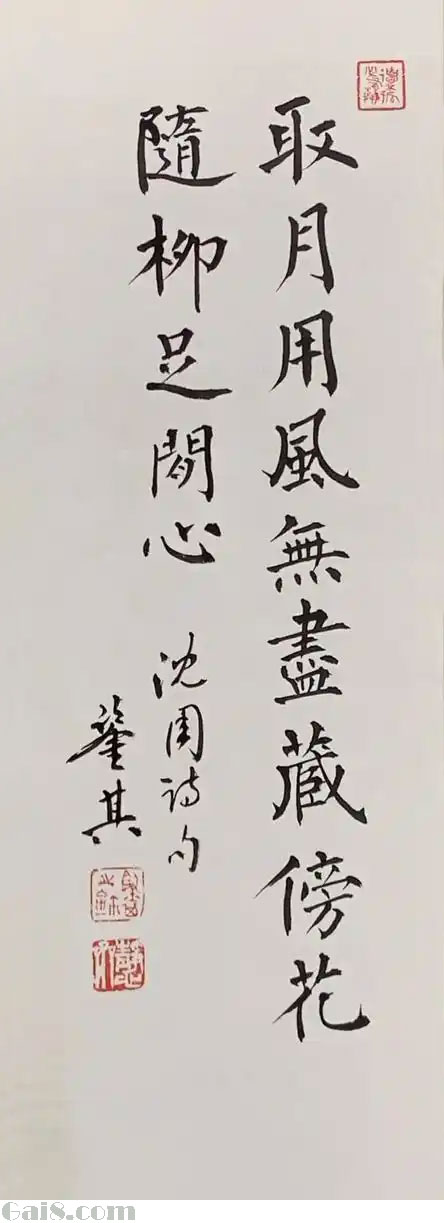 取月用風無盡藏傍花
隨柳足閒心
沈周詩句
其
Gai8.com